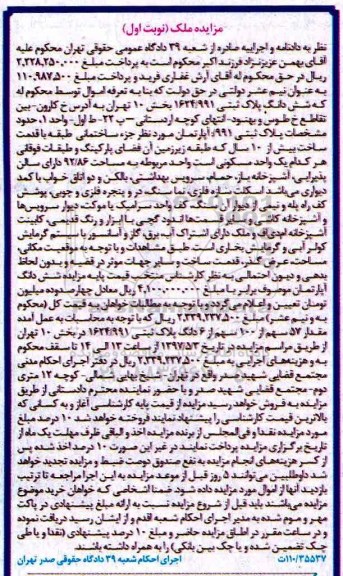 مزایده ملک (نوبت اول)
نظر به دادنامه و اجراییه صادره از شعبه ۳۹ دادگاه عمومی حقوقی تهران محکوم علیه
آقای بهمن عزیزنژاد فرزند اکبر محکوم است به پرداخت مبلغ ۲,۲۲۸,۲۵۰,۰۰۰
ریال در حق محکوم له آقای آرش غفاری فرید و پرداخت مبلغ ۱۱۰,۹۸۷,۵۰۰
به عنوان نیم عشر دولتی در حق دولت که بنا به تعرفه اموال توسط محکوم له
که شش دانگ پلاک ثبتی ۱۶۲۴/۹۹۱ بخش ۱۰ تهران به آدرس خ کارون-بین
تقاطع خ طوس و بهنود- انتهای کوچه اردستانی - پ ۲۲- ط اول- واحد ۱، حدود
مشخصات پلاک ثبتی ۹۹۱: آپارتمان مورد نظر جزء ساختمانی طبقه با قدمت
ساخت بیش از ۱۰ سال که طبقه زیرزمین آن فضای پارکینگ و طبقات فوقانی
هر کدام یک واحد مسکونی است واحد مربوطه به مساحت ۹۲/۸۶ دارای سالن
پذیرایی، آشپزخانه باز، حمام، سرویس بهداشتی، بالکن و دو اتاق خواب با کمد
دیواری می‌باشد اسکلت سازه فلزی، نما سنگ، در و پنجره فلزی و چوبی، پوشش
کف راه پله و پیلوت سنگ، کف واحد سرامیک یا موکت، دیوار سرویس‌ها
و آشپزخانه کاشی و سایر قسمت‌ها اندود گچی با ابزار و رنگ قدیمی، کابینت
آشپزخانه ام‌دی‌اف و ملک دارای اشتراک آب، برق، گاز و آسانسور با سیستم گرمایش
کولر آبی و گرمایش بخاری است طبق مشاهدات و با توجه به موقعیت مکانی،
مساحت عرض گذر، قدمت ساخت و سایر جهات موثر در قضیه و بدون لحاظ
بدهی و دیون احتمالی به نظر کارشناس منتخب قیمت پایه مزایده شش دانگ
آپارتمان موصوف برابر با مبلغ ۴,۱۰۰,۰۰۰,۰۰۰ ریال معادل چهارصد و ده میلیون
تومان تعیین و اعلام می‌گردد و با توجه به مطالبات خواهان به قیمت کل (محکوم
به و نیم عشر) مبلغ ۲,۳۳۹,۲۳۷,۵۰۰ ریال که با توجه به محاسبات به عمل آمده
مقدار ۵۷ سهم از ۱۰۰ سهم از ۶ دانگ پلاک ثبتی ۱۶۲۴/۹۹۱ در بخش ۱۰ تهران
از طریق مراسم مزایده در تاریخ ۱۳۹۷/۵/۳ از ساعت ۱۳ الی ۱۴ تا سقف محکوم
به و هزینه‌های اجرایی به مبلغ ۲,۳۳۹,۲۳۷,۵۰۰ ریال در دفتر اجرای احکام مدنی
مجتمع قضایی شهید صدر واقع در تهران- شیخ بهایی شمالی- کوچه ۱۲ متری
دوم- مجتمع قضایی شهید صدر و با حضور نماینده محترم دادستانی از طریق
مزایده به فروش خواهد رسید مزایده از قیمت پایه کارشناسی آغاز و به کسی که
بالاترین قیمت کارشناسی را پیشنهاد نمایند فروخته خواهد شد ۱۰ درصد مبلغ
مورد مزایده نقدا و فی‌المجلس از برنده مزایده اخذ و الباقی ظرف مهلت یک ماه از
تاریخ برگزاری مزایده پرداخت نمایند در غیر این صورت ۱۰ درصد اخذ شده پس
از کسر هزینه‌های انجام مزایده به نفع صندوق دولت ضبط و مزایده تجدید خواهد
شد داوطلبین می‌توانند ۵ روز قبل از موعد مزایده به این اجرا مراجعه تا ترتیب
بازدید آنها از اموال مورد مزایده داده شود ضمنا اشخاصی که خواهان خرید موضوع
مزایده می‌باشند باید قبل از شروع مزایده نسبت به ارائه مبلغ پیشنهادی در پاکت
مهر و موم شده به مدیر اجرای احکام شعبه اقدم و از ایشان رسید دریافت نموده
و در ساعت مقرر در اطاق مزایده حاضر و مبلغ ۱۰ درصد پیشنهادی (نقدا و یا طی
چک تضمین شده و یا چک بین بانکی) را به همراه داشته باشند.
۱۱۰/۳۵۵۳۷ت
اجرای احکام شعبه ۳۹ دادگاه حقوقی صدر تهران